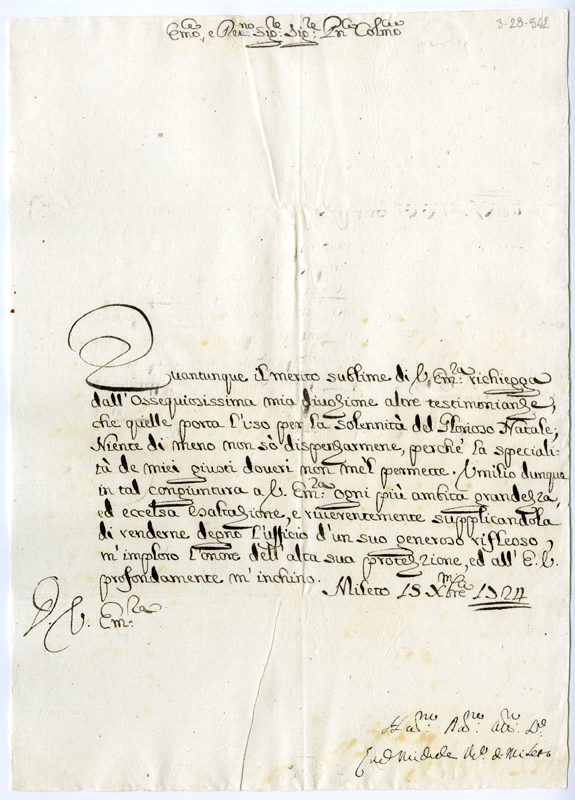 3-23-542
Em̃o, e Reu:no Sig:re Sig:re Pñ Colmo
Quantunque il merito sublime di V. Em:za richiegga
dall'Ossequiosissima mia diuozione altre testimonianze,
che quelle porta l'uso per la solennità del Glorioso Natale;
Niente di meno non sò dispenzarmene, perche la speciali-
tà de miei giusti doueri non mel permette. Umilio dunque
in tal congiuntura a V. Em:za ogni più ambita grandezza,
ed eccelsa esaltazione, e riuerentemente supplicandola
di renderne degno l'ufficio d'un suo generoso riflesso,
m'imploro l'onore dell'alta sua protezzione, ed all'E. V.
profondamente m'inchino. Mileto 15 Xbre 1724
D. V. Em:za
Mileto